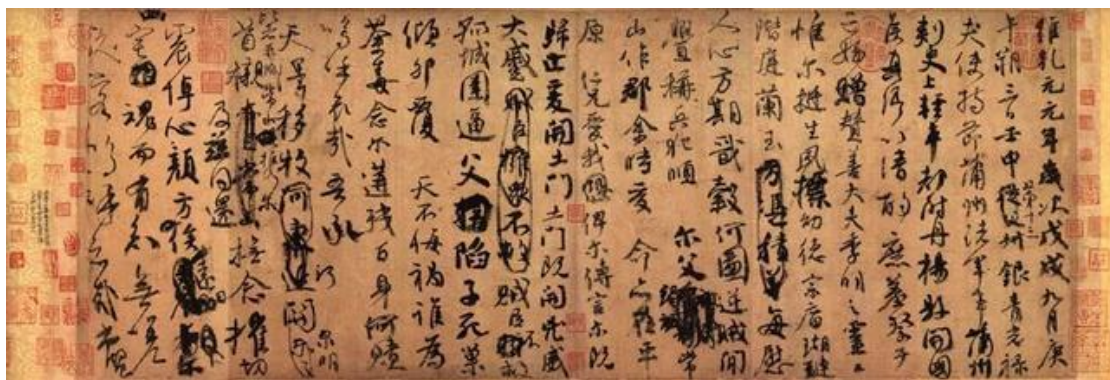 維乾元元年歲次戊戌九月庚
午朔三日壬申第十三叔銀青光祿
夫使持節蒲州諸軍事蒲州
刺史上輕車都尉丹楊縣開國
侯真卿以清酌庶羞祭于
亡姪贈贊善大夫季明之靈曰
惟爾挺生夙標幼德宗廟瑚璉
階庭蘭玉方憑積善每慰
人心方期戩穀何圖逆賊閒
釁稱兵犯順爾父竭誠常
山作郡余時受命亦在平
原仁兄愛我俾爾傳言爾既
歸止爰開土門土門既開凶威
大蹙賊臣不救
孤城圍逼父陷子死巢
傾卵覆天不悔禍誰為
荼毒念爾遘殘百身何贖
嗚呼哀哉吾承
天澤移牧河關泉明
比者再陷常山攜爾
首櫬及茲同還撫念摧切
震悼心顏方俟遠日卜爾幽
宅魂而有知無嗟
久客嗚呼哀哉尚饗